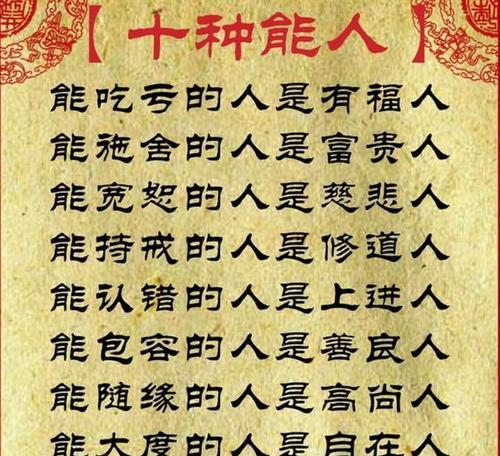 【十种能人】
能吃亏的人是有福人
能施舍的人是富贵人
能宽恕的人是慈悲人
能持戒的人是修道人
能认错的人是上进人
能包容的人是善良人
能随缘的人是高尚人
能大度的人是自在人